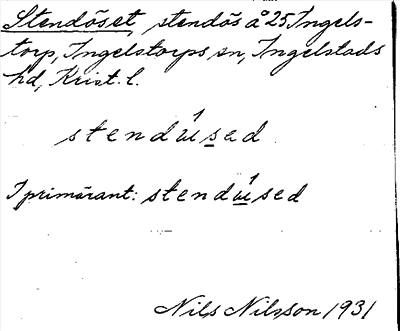 Stendöset, stendös å 25 Ingels-
torp, Ingelstorps sn, Ingelstads
hd, Krist. l.
stendúised
I primärant: stendúised
Nils Nilsson 1931